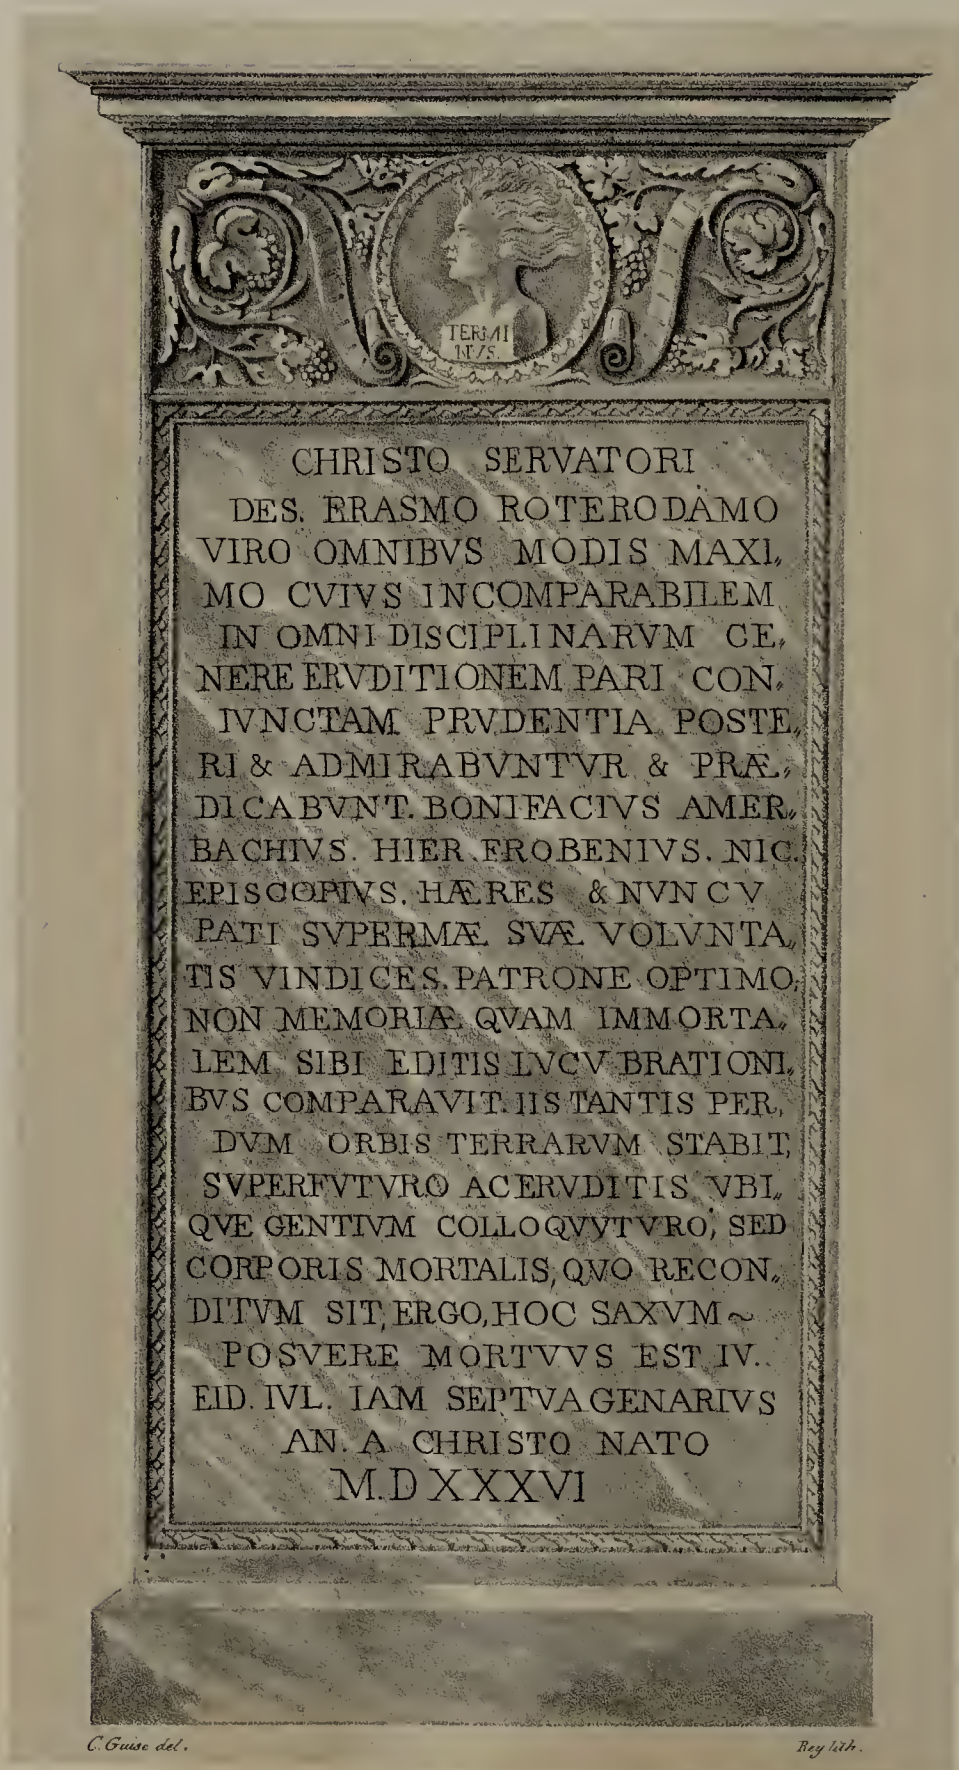 TERMI
NVS.
CHRISTO SERVATORI
DES. ERASMO ROTERODAMO
VIRO OMNIBVS MODIS MAXI„
MO CVIVS INCOMPARABILEM
IN OMNI DISCIPLINARVM GE„
NERE ERVDITIONEM PARI CON„
IVNCTAM PRVDENTIA POSTE„
RI & ADMIRABVNTVR & PRÆ„
DICABVNT. BONIFACIVS AMER„
BACHIVS. HIER. FROBENIVS. NIC.
EPISCOPIVS. HÆRES & NVNCV
PATI SVPERMÆ SVÆ VOLVNTA„
TIS VINDICES. PATRONE OPTIMO,
NON MEMORIÆ QVAM IMMORTA„
LEM SIBI EDITIS LVCVBRATIONI„
BVS COMPARAVIT. IIS TANTIS PER,
DVM ORBIS TERRARVM STABIT,
SVPERFVTVRO AC ERVDITIS VBI„
QVE GENTIVM COLLOQVVTVRO, SED
CORPORIS MORTALIS, QVO RECON„
DITVM SIT, ERGO, HOC SAXVM ~
POSVERE MORTVVS EST IV.
EID. IVL. IAM SEPTVAGENARIVS
AN. A CHRISTO NATO
M.D XXXVI
C. Guise del.
Rey lith.